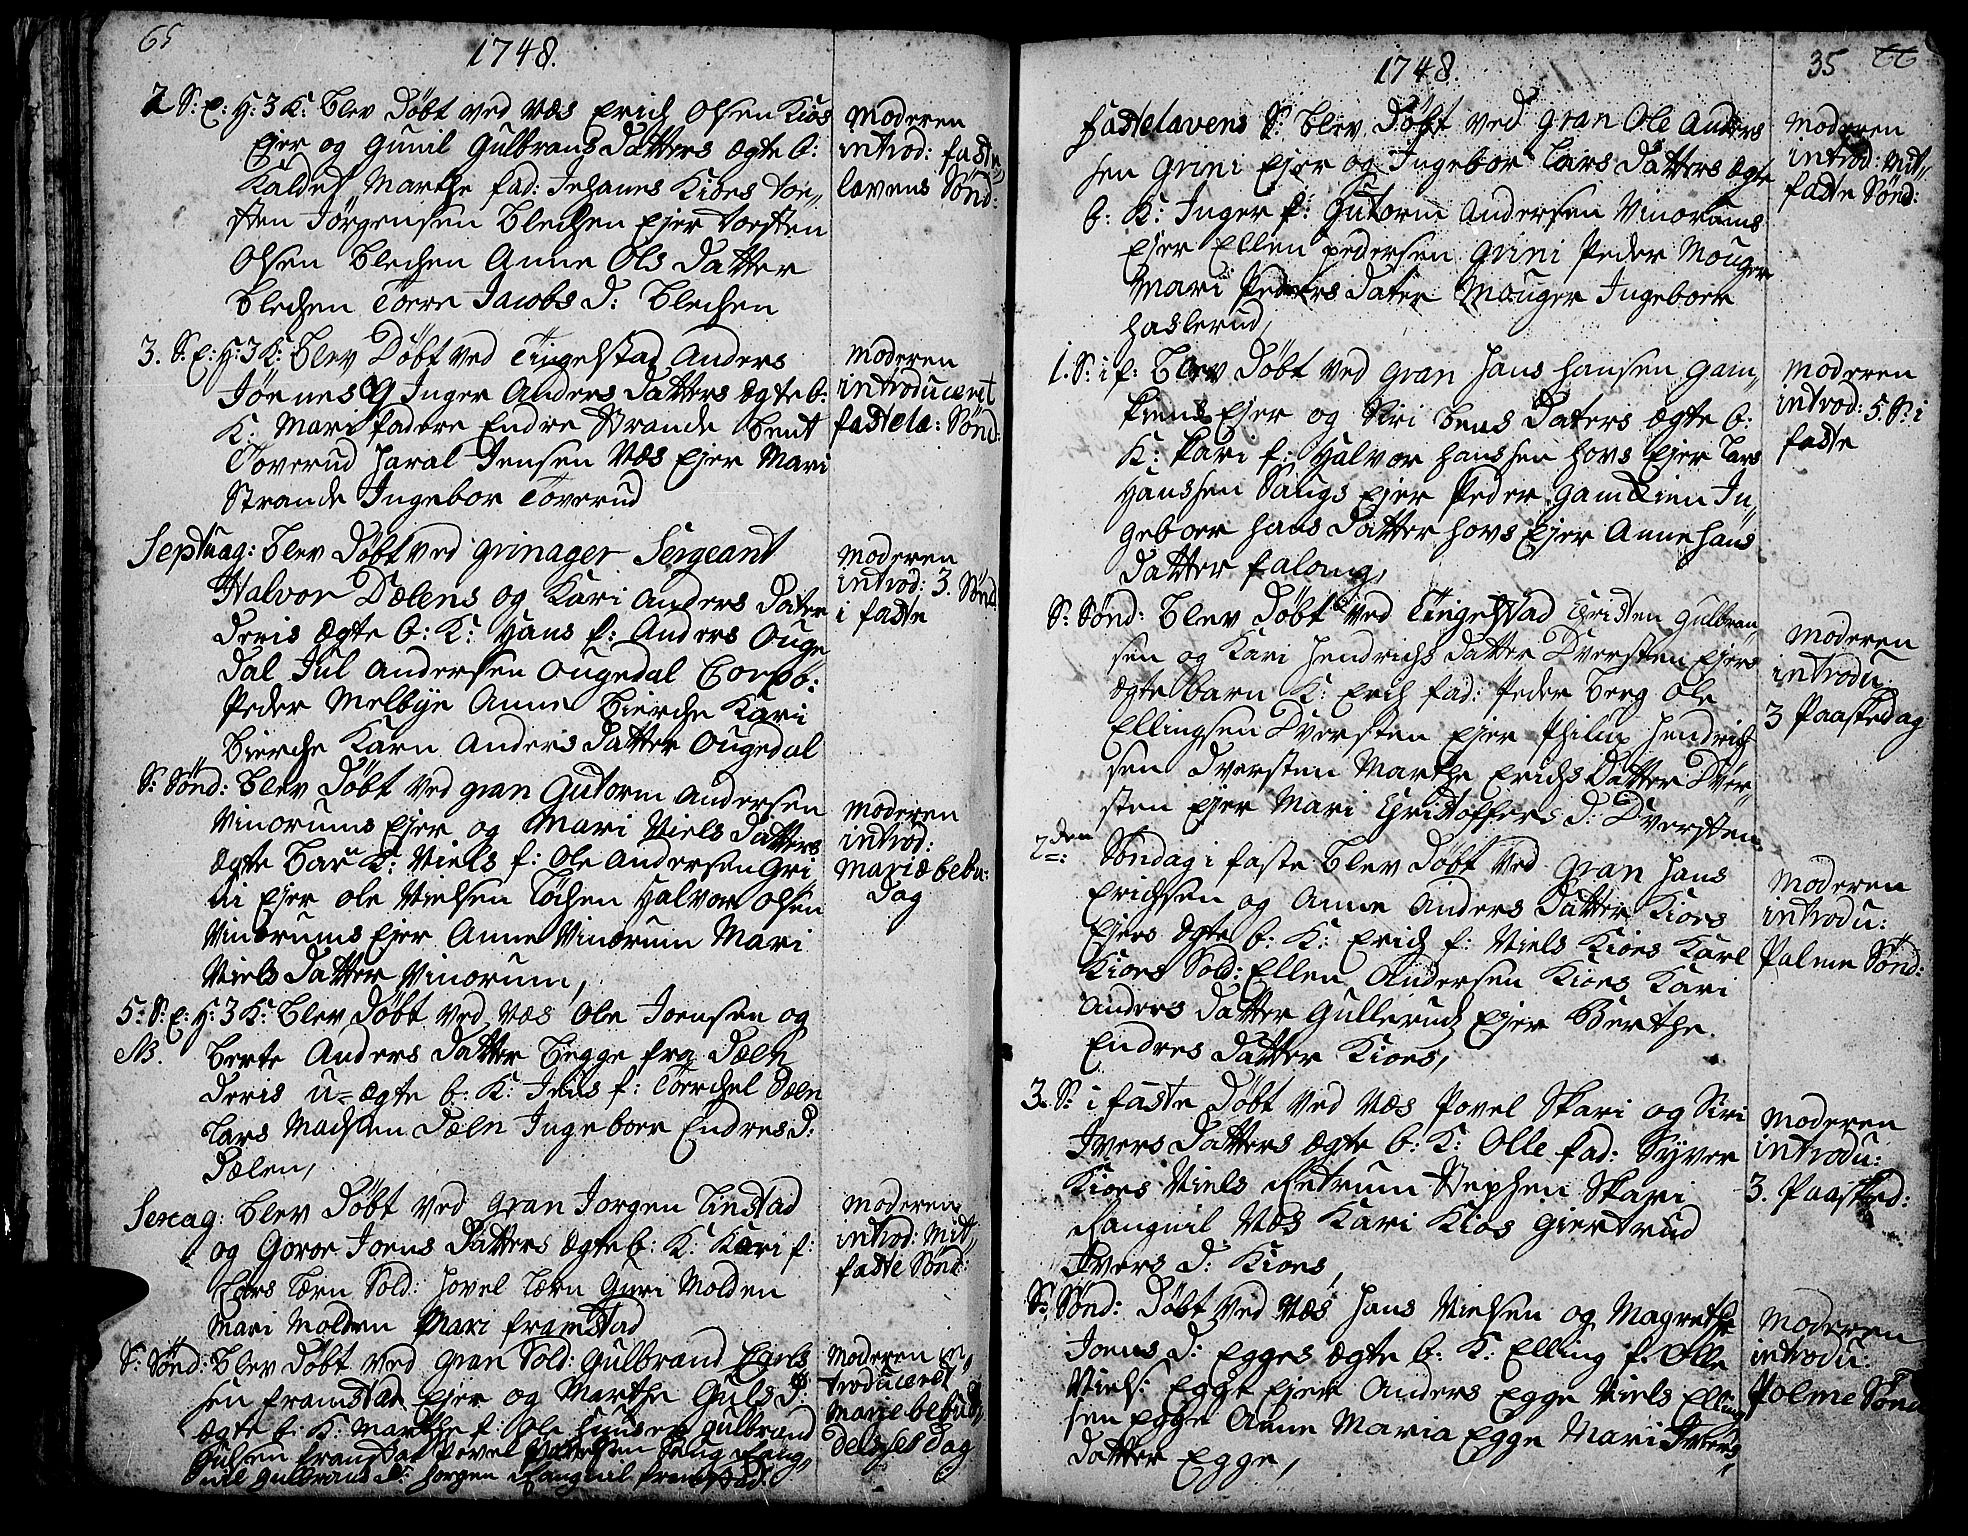 65
1748.
2 S: E: H: 3 K: blev Døbt ved Næs Erich Olsen Kios
Ejer og Gunil Gulbrans Datters ægte b:
Kaldet Marthe fad: Johanes Kioes tor„
sten Jørgensen Blechen Ejer torsten
Olsen Blechen Anne Ols Datter
Blechen Torre Jacobs D: Blechen
Moderen
introd: faste„
lavens Sønd:
3. S: E: H: 3 K: blev Døbt ved Tingelstad Anders
Jørnes Og Inger Anders Datters ægte b:
K: Mari fadere Endre Strande bent
Toverud Haral Jensen Næs Ejer Mari
Strande Ingebor Toverud
Moderen
introduceret
fastela: Sønd:
Septuag: blev Døbt ved grinager Sergeant
Halvor Dælens og Kari Anders Dater
Deris ægte b: K: Hans f: Anders Ouge
Dal Jul Andersen Ougedal Corpo:
Peder Melbye Anne Bierche Kari
Bierche Karn Anders Datter Ougedal
Moderen
introd: 3. Sønd
i faste
S: Sønd: blev Døbt ved gran Gutorm Andersen
Vinorums Ejer og Mari Niels Datters
ægte bar K: Niels f: Ole Andersen Gri
ni Ejer ole Nielsen Løchen Halvor Olsen
Vinorums Ejer Anne Vinorum Mari
Niels Datter Vinorum,
Moderen
introd:
Mariæ bebu:
Dag
5: S: E: H: 3 K: blev Døbt ved Næs Ole Joensen og
NB. Berte Anders Datter begge fra Dæln
Deris u=ægte b: K: Jens f: Torchel Dæln
Lars Madsen Dæln Ingeboer Endres D:
Dælen,
Sexag: blev Døbt ved gran Jorgen Tinstad
og Goroe Joens Datters ægte b: K: Kari f:
Lars Lærn Sold: Hovel Lærn Guri Molden
Mari Molden Mari framstad
Moderen
introd: Mit„
faste Sønd:
S: Sønd: blev Døbt ved gran Sold: Gulbrand Lars
sen framstad Ejer og Marthe Guls D:
ægte b: K: Marthe f: Ole Hansen gulbrand
Gulsen framstad Povel Haug Rang„
nil gulbrans D: Horgen Rangnil framstad
Moderen in„
troduceret
Marie bebu„
delsses dag
1748.
35 66
fastelavens S: blev Døbt ved gran Ole Anders
sen grini Ejer og Ingebor Lars Datters ægte
b: K: Inger f: Gutorm Andersen Vinorums
Ejer Ellen Pedersen grini Peder Mouger
Mari Peders Dater Mouger Ingeboer
Haslerud,
Moderen
introd: Mit„
faste Sønd:
1. S: i f: blev Døbt ved gran Hans Hansen gam„
kiens Ejer og Siri bens Daters ægte b:
K: Kari f: Halvor Hanssen Hovs Ejer Lars
Hanssen Saugs Ejer Peder gamkien In„
geboer Hans Datter Hovs Ejer Anne Hans
Datter falang,
Moderen
introd: 5 S: i
faste
S: Sønd: blev Døbt ved Tingelstad Christen gulbran„
sen og Kari Hendrichs Datter Dversten Ejers
ægte barn K: Erich fad: Peder berg Ole
Ellingsen Dversten Ejer Philip Hendrich
sen Dversten Marthe Erichs Datter Dver„
sten Ejer Mari Christoffers D: Dversten
Moderen
introdu:
3 Paaskedag
2den: Søndag i faste blev Døbt ved gran Hans
Erichsen og Anne Anders Datter Kioes
Ejers ægte b: K: Erich f: Niels Kioes Karl
Kioes Sold: Ellen Andersen Kioes Kari
Anders Datter Gullerud Ejer Berthe.
Endres Datter Kioes,
Moderen
introdu:
Palme Sønd:
3. S: i faste Døbt ved Næs Povel Skari og Siri
Ivers Datters ægte b: K: Olle fad: Syver
Kioes Niels Retrum Stephen Skari
Rangnil Næs Kari Kios Giertrud
Ivers D: Kioes,
Moderen
introdu:
3. Paasked:
S: Sønd: Døbt ved Næs Hans Nielsen og Magrethe
Joens D: Egges ægte b: K: Elling f. Olle
Niels: Egge Ejer Anders Egge Niels Elling
sen Egge Anne Maria Egge Mari Ivers
Datter Egge,
Moderen
introdu:
Palme Sønd